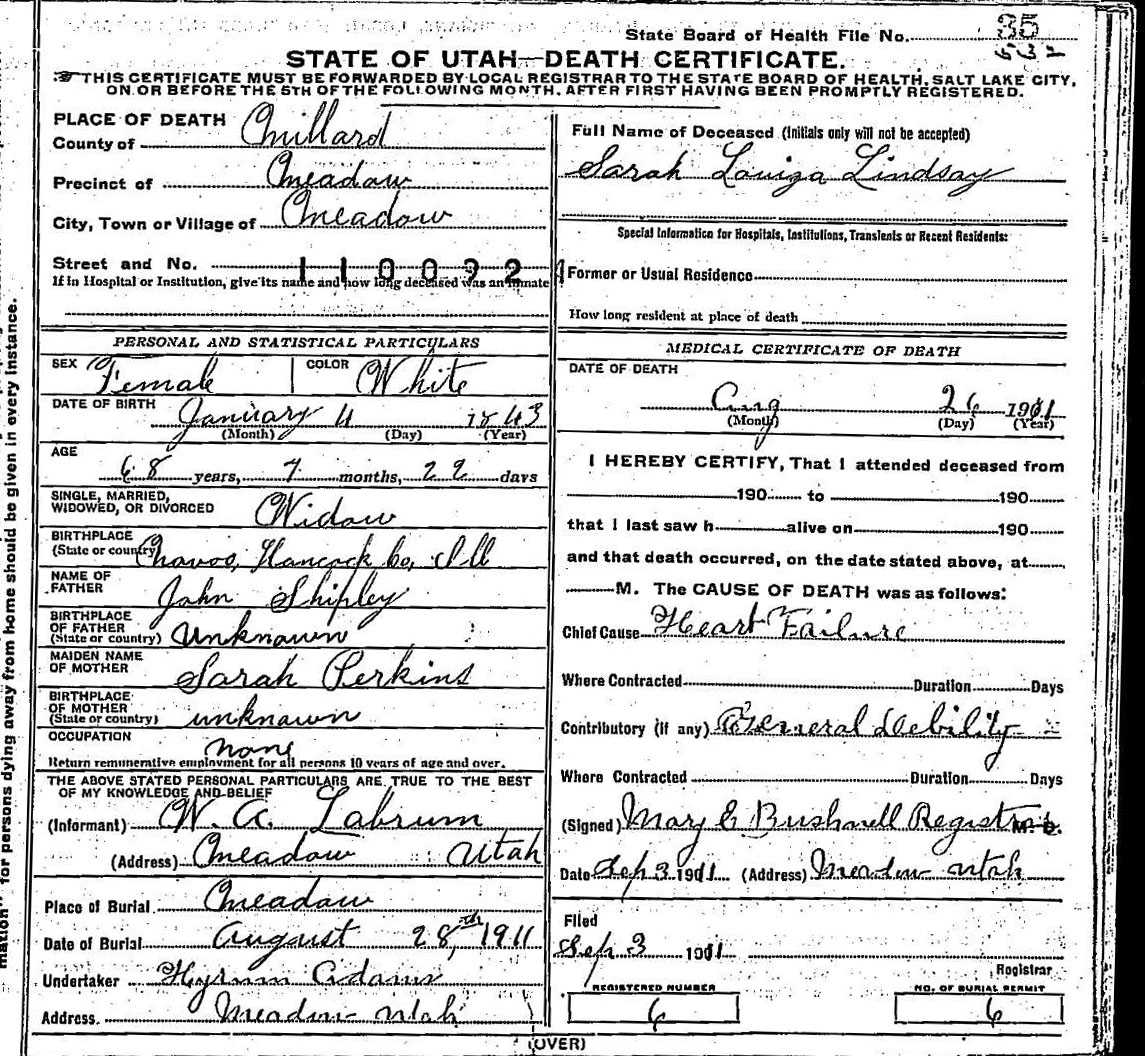 State Board of Health File No. 35
532
STATE OF UTAH—DEATH CERTIFICATE.
THIS CERTIFICATE MUST BE FORWARDED BY LOCAL REGISTRAR TO THE STATE BOARD OF HEALTH, SALT LAKE CITY,
ON OR BEFORE THE 5TH OF THE FOLLOWING MONTH, AFTER FIRST HAVING BEEN PROMPTLY REGISTERED.
PLACE OF DEATH
County of Millard
Precinct of Meadow
City, Town or Village of Meadow
Street and No.
1100924
If in Hospital or Institution, give its name and how long deceased was an inmate
PERSONAL AND STATISTICAL PARTICULARS
SEX Female COLOR White
DATE OF BIRTH January 4 1843
(Month) (Day) (Year)
AGE
68 years, 7 months, 22 days
SINGLE, MARRIED,
WIDOWED, OR DIVORCED Widow
BIRTHPLACE
(State or country) Navoo, Hancock Co, Ill
NAME OF
FATHER John Shipley
BIRTHPLACE
OF FATHER
(State or country) Unknown
MAIDEN NAME
OF MOTHER Sarah Perkins
BIRTHPLACE
OF MOTHER
(State or country) unknown
OCCUPATION none
Return remunerative employment for all persons 10 years of age and over.
THE ABOVE STATED PERSONAL PARTICULARS ARE TRUE TO THE BEST
OF MY KNOWLEDGE AND BELIEF
(Informant) W. A. Labrum
(Address) Meadow Utah
Place of Burial Meadow
Date of Burial August 28,th 1911
Undertaker Hyrum Adams
Address. Meadow Utah
Full Name of Deceased (Initials only will not be accepted)
Sarah Louiza Lindsay
Special Information for Hospitals, Institutions, Transients or Recent Residents:
Former or Usual Residence
How long resident at place of death
MEDICAL CERTIFICATE OF DEATH
DATE OF DEATH
Aug 26 1911
(Month) (Day) (Year)
I HEREBY CERTIFY, That I attended deceased from
190 to 190
that I last saw h alive on 190
and that death occurred, on the date stated above, at
M. The CAUSE OF DEATH was as follows:
Chief Cause Heart Failure
Where Contracted Duration Days
Contributory (if any) General Debility
Where Contracted Duration Days
(Signed) Mary E Bushnell Registrar M. D.
Date Sep 3 1911 (Address) Meadow Utah
Filed
Sep 3 1911
Registrar
REGISTERED NUMBER
6
NO. OF BURIAL PERMIT
6
(OVER)
mation" for persons dying away from home should be given in every instance.